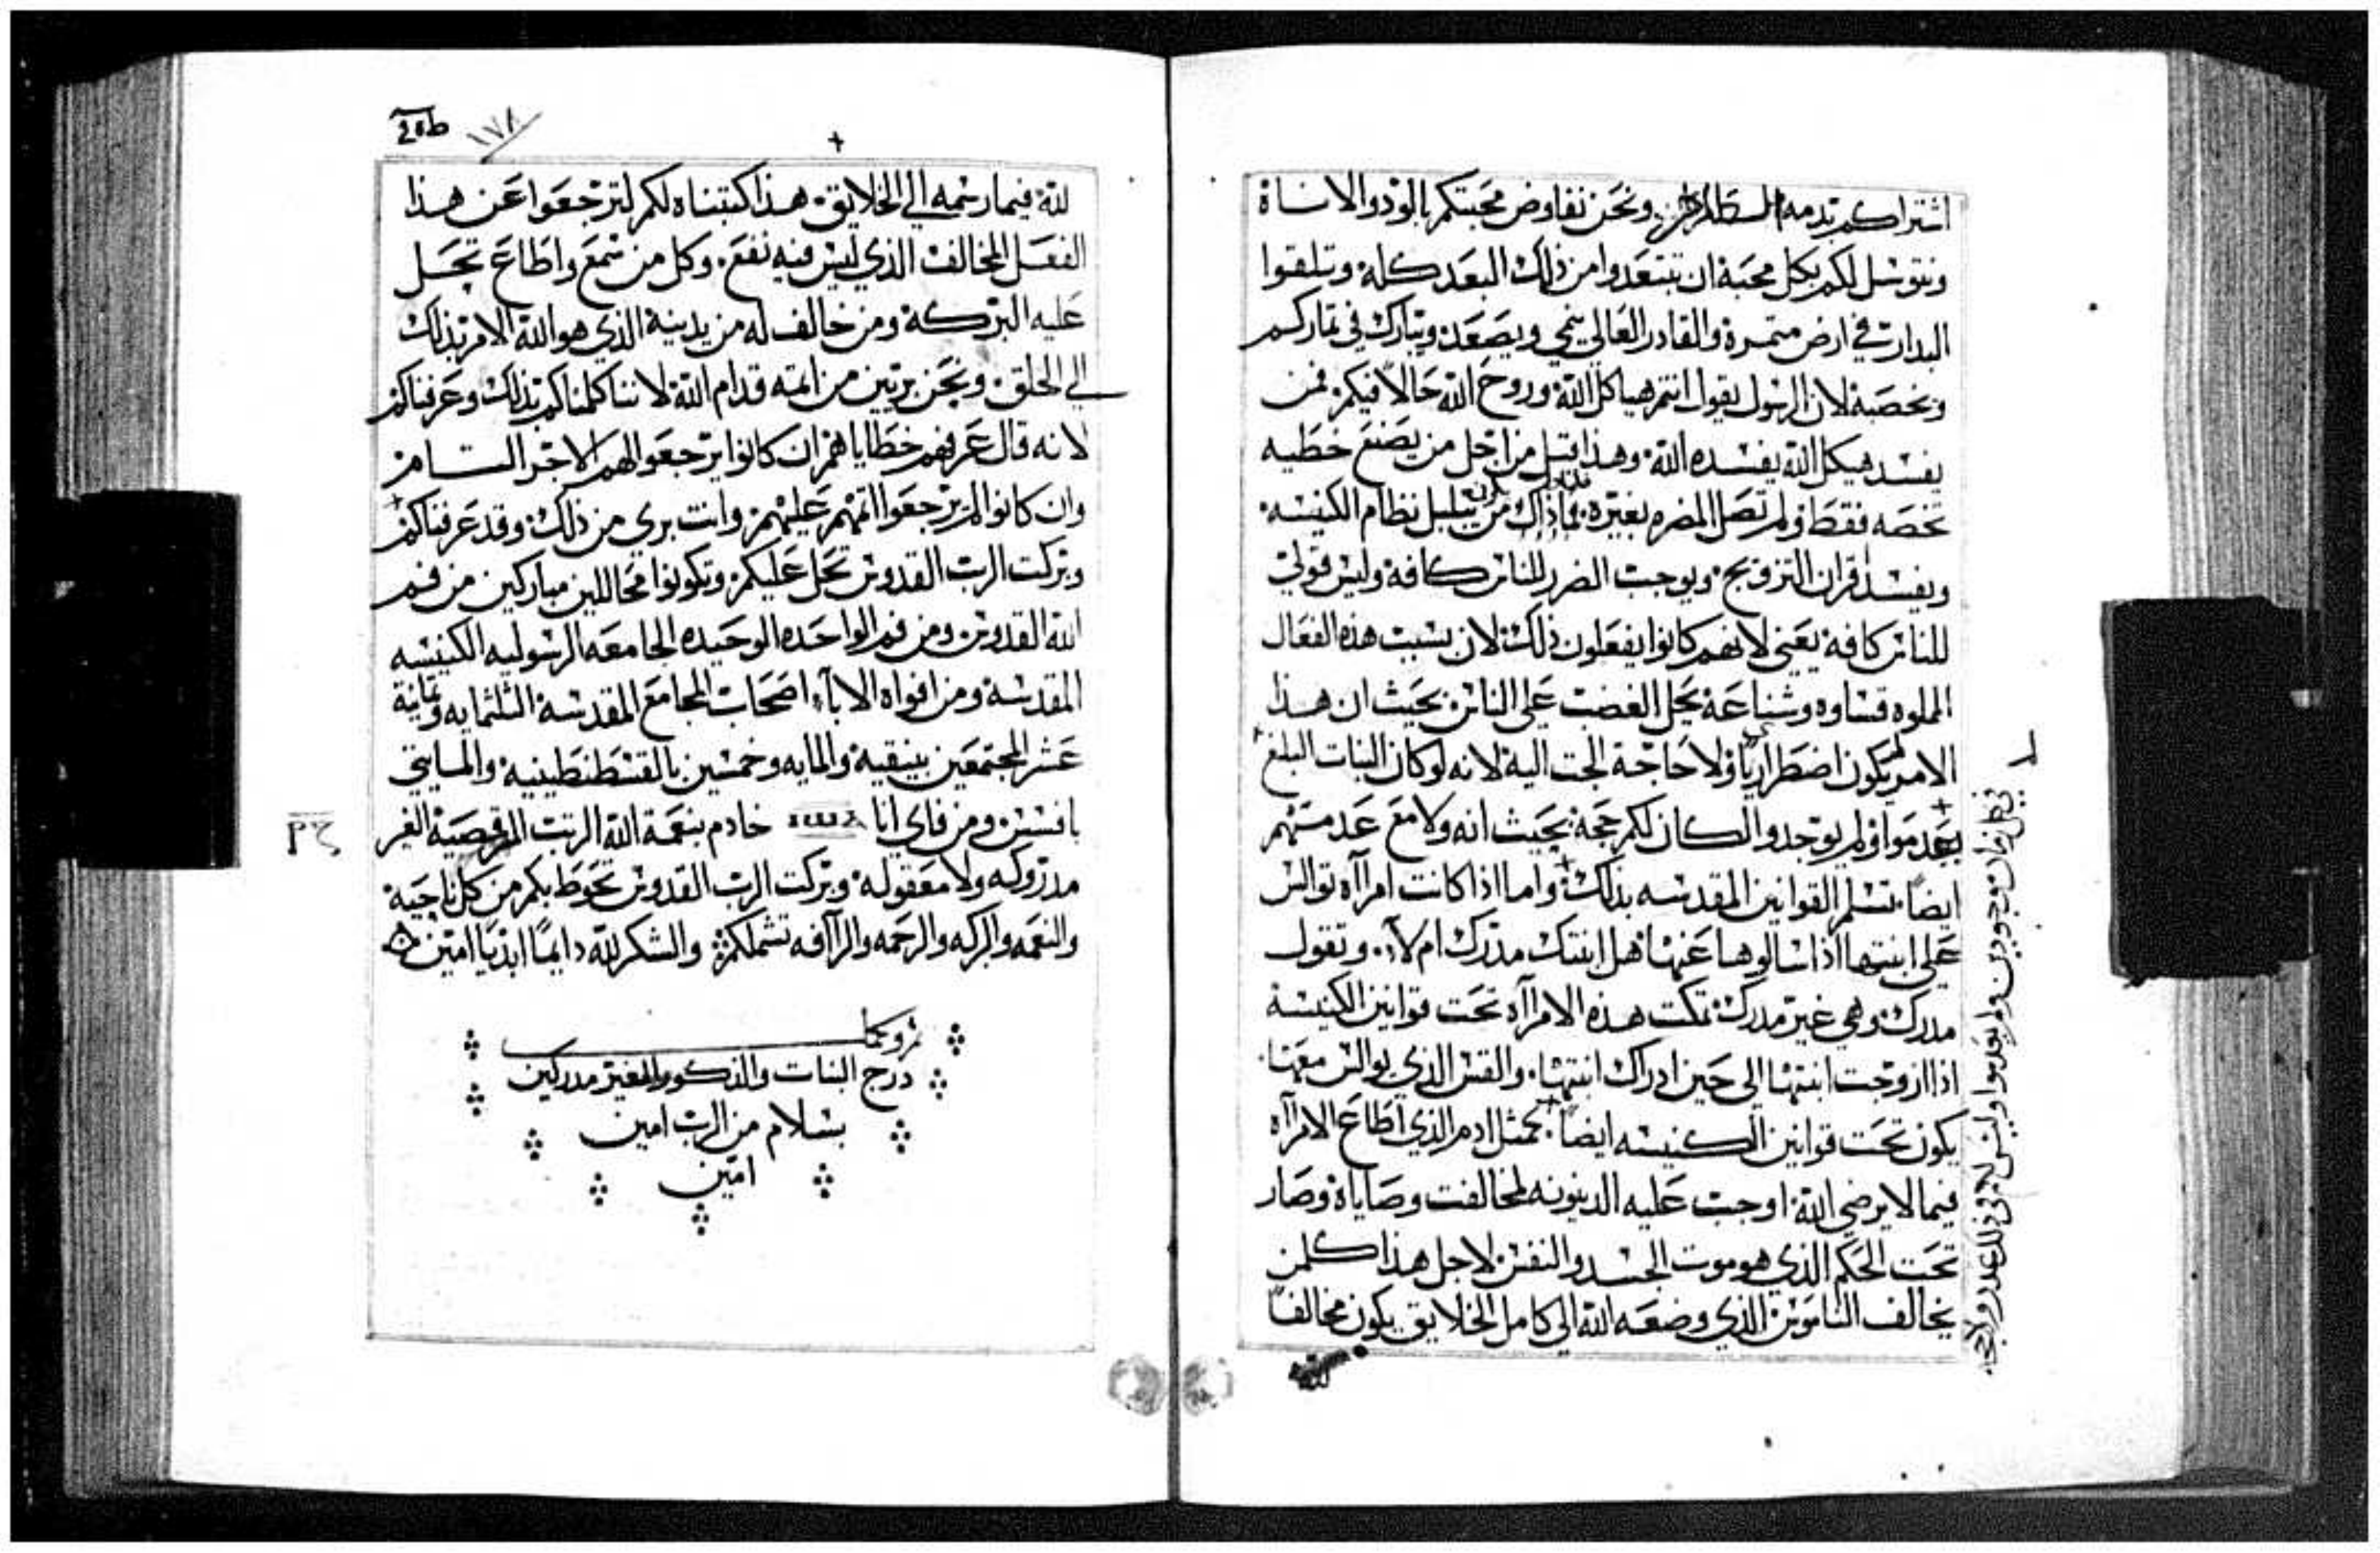 اشتراكم بدمه الطاهر ونحن نفاوض محبتكم بالود والاناة
ونتوسل لكم بكل محبة ان تبتعدوا من ذلك البعد كله وتلقوا
البدار في ارض متمرة والقادر العالي ينمي ويصعد ويبارك في تماركم
وبخصبة لان الرسول يقول انتم هياكل اللة وروح اللة حالاً فيكم فمن
يفسد هيكل اللة يفسده اللة وهذا قيل من اجل من يصنع خطيه
تخصه فقط ولم تصل المضره بغيره من يبلبل نظام الكنيسه
ويفسد اقران التزويج ويوجب الضرر للناس كافة وليس قولي
للناس كافة يعني لانهم كانوا يفعلون ذلك لان بسبب هذه الفعال
المملوه قساوه وشناعة يحل الغضب علي الناس بحيث ان هذا
الامر لم يكون اضطرارياً ولا حاجة الجت الية لانه لوكان البنات البلغ
بعدموا ولم يوجدوا لكان لكم حجة بحيث انه ولا مع عدمتهم
ايضاً تسلم القوانين المقدسه بذلك واما اذا كانت امرااه توالس
علي ابنتها اذا سالوها عنها هل ابنتك مدرك ام لا وتقول
مدرك وهي غير مدرك تمكت هذه الامرااه تحت قوانين الكنيسة
اذا ازوجت ابنتها الي حين ادراك ابنتها والقس الذي يوالس معها
يكون تحت قوانين الكنيسه ايضاً كمثل ادم الذي اطاع الامرااه
فيما لا يرضي اللة اوجب عليه الدينونه لمخالفت وصاياة وصار
تحت الحكم الذي هو موت الجسد والنفس لاجل هذا كلمن
يخالف الناموس الذي وضعه اللة الي كامل الخلايق يكون مخالفاً
للة
في كل زمان موجودين ولم يعدموا وليس لاحد في ذلك عدر ولا حجة
20b ١٧٨
للة فيما رسمه الي الخلايق هذا كتبناه لكم لترجعوا عن هذا
الفعل المخالف الذي ليس فيه نفع وكل من سمع واطاع تحل
عليه البركة ومن خالف له من يدينة الذي هو اللة الامر بذلك
الي الخلق ونحن بريين من اتمه قدام اللة لاننا كلمناكم بذلك وعرفناكم
لانه قال عرفهم خطاياهم ان كانوا يرجعوا الهم الاجر التام
وان كانوا لم يرجعوا اتمهم عليهم وانت بري من ذلك وقد عرفناكم
وبركت الرب القدوس تحل عليكم وتكونوا محاللين مباركين من فم
اللة القدوس ومن فم الواحده الوحيده الجامعه الرسوليه الكنيسه
المقدسة ومن افواه الاباء اصحاب المجامع المقدسة الثلثمايه وتمانية
عشر المجتمعين بنيقية والمايه وخمسين بالقسطنطينية والمايتي
بافسس ومن فاي انا خادم بنعمة اللة الرتب المرقصية الغير
مدروكه ولا معقولة وبركت الرب القدوس تحوط بكم من كل ناحية
والنعمه والبركه والرحمه والراافه تشملكم والشكر للة دايماً ابدياً امين
تم وكمل
درج البنات والذكور الغير مدركين
بسلام من الرب امين
امين